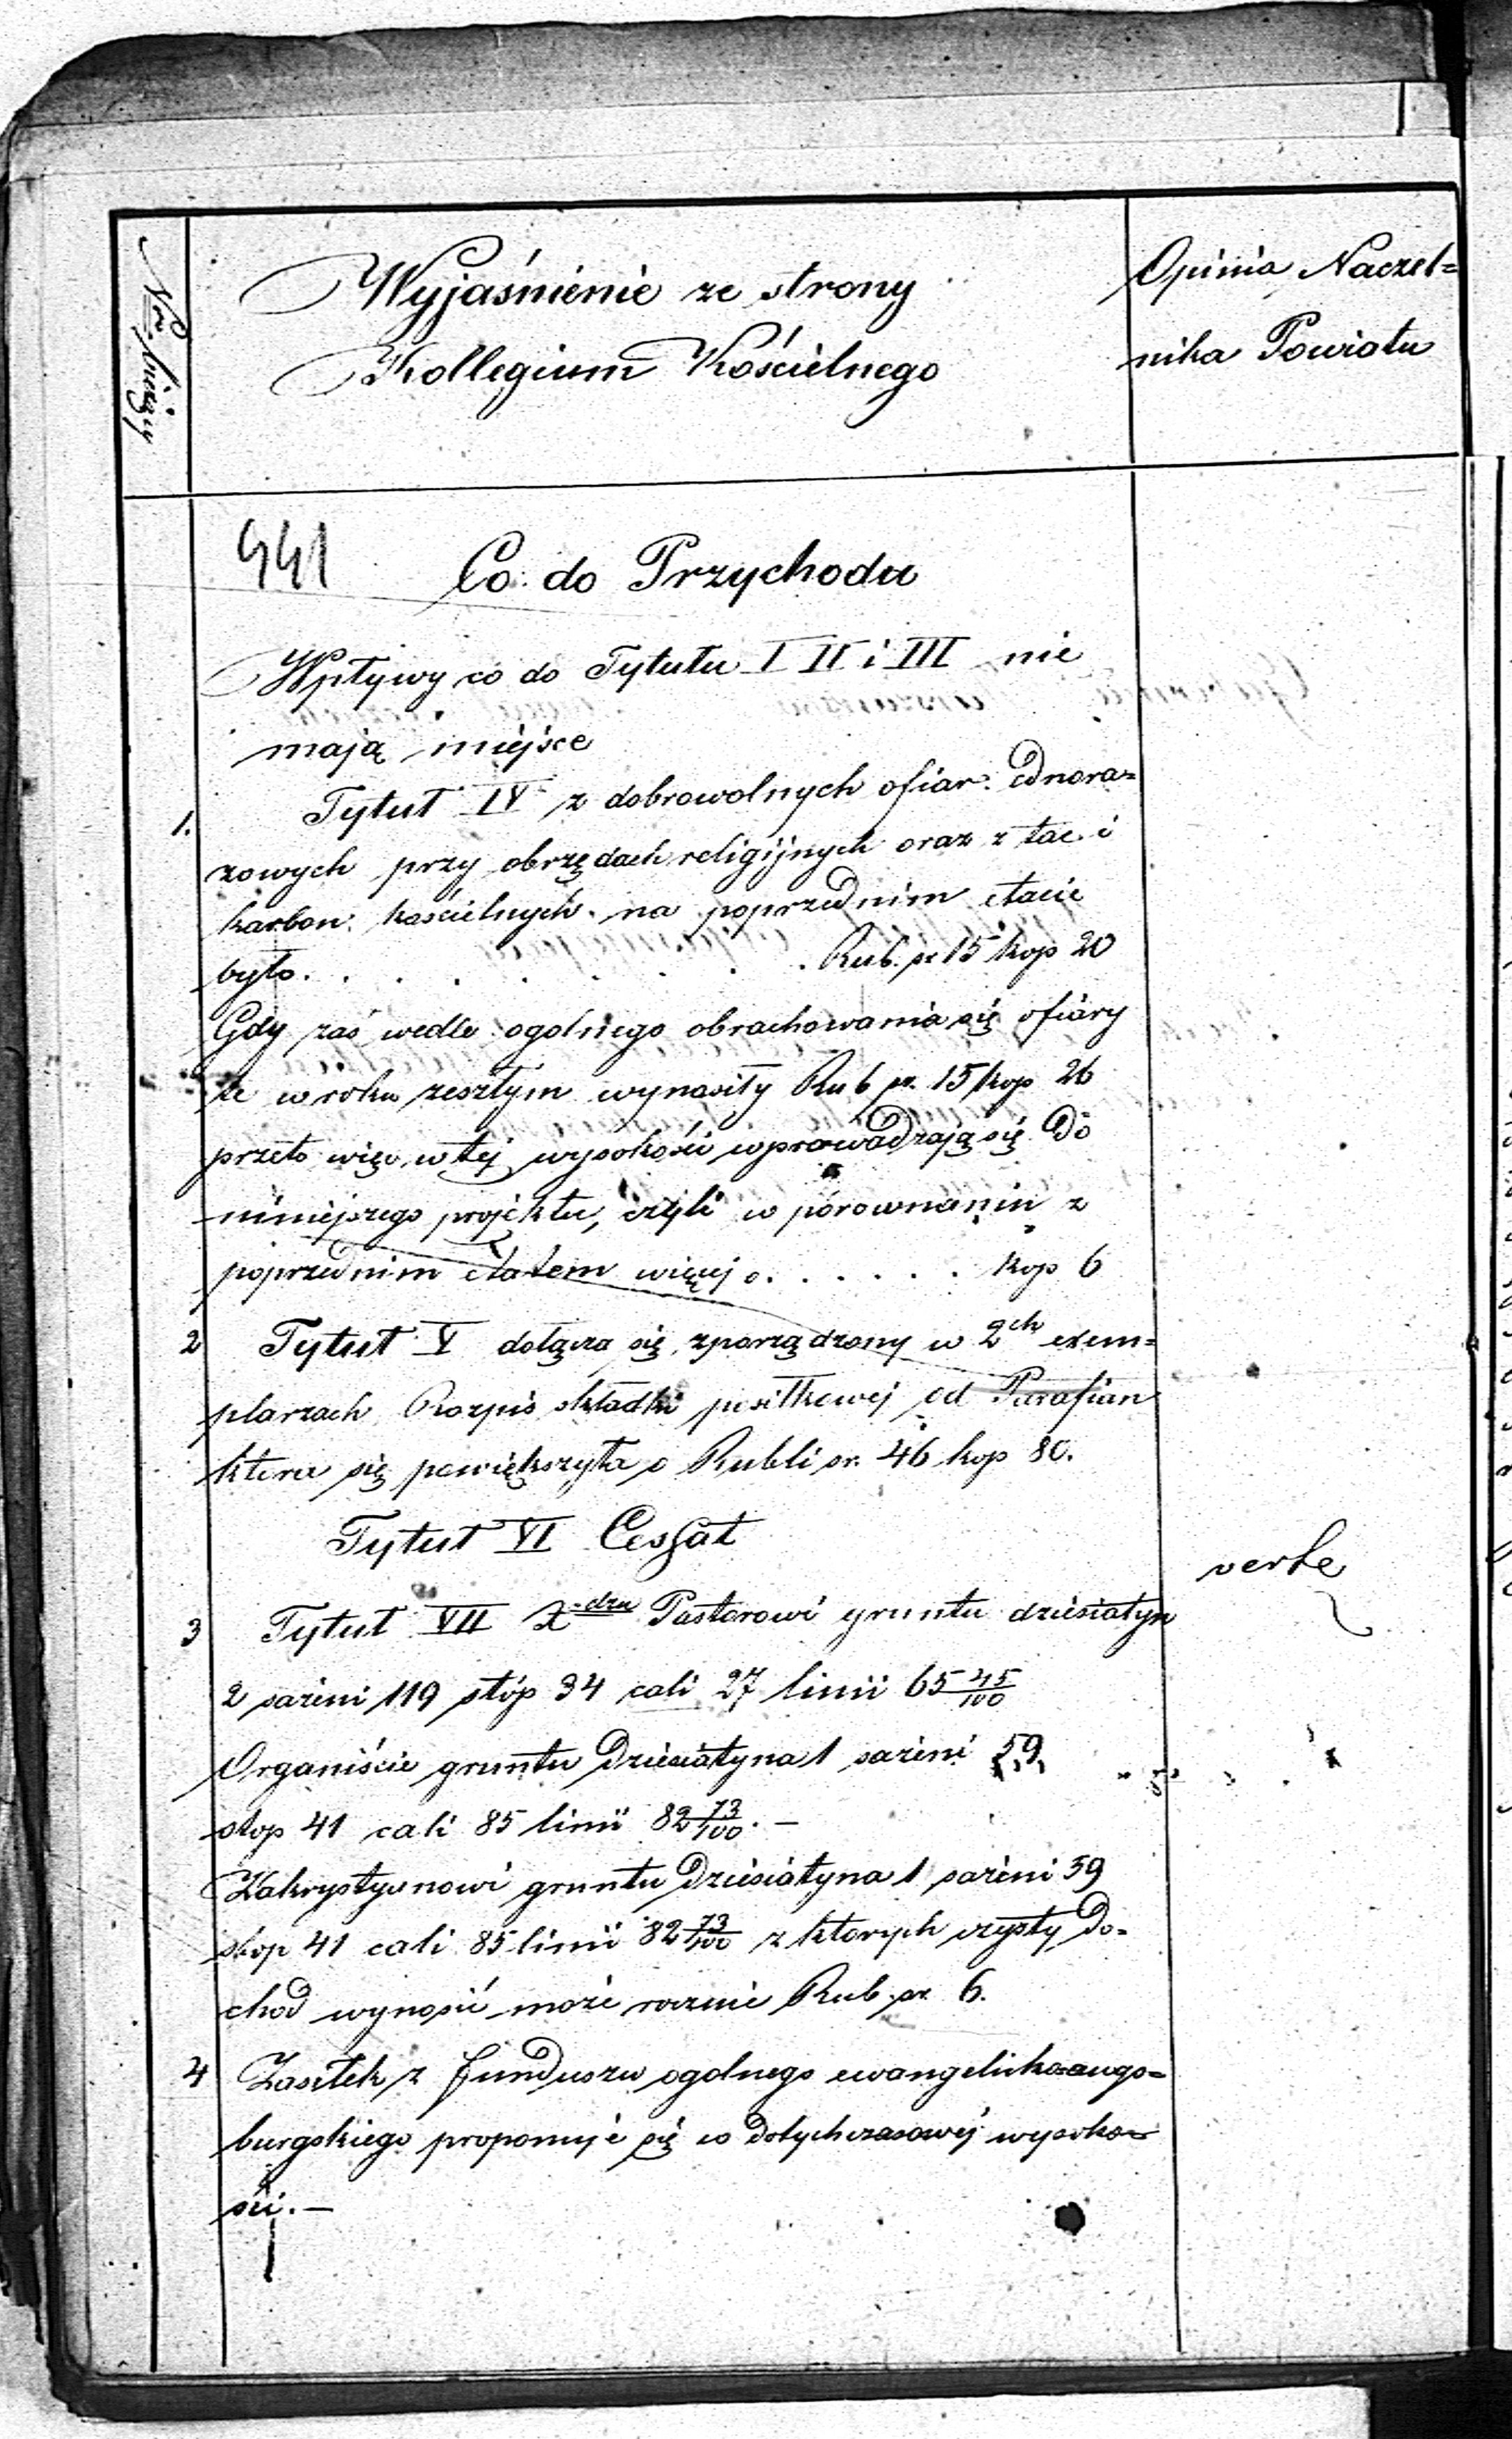 Nr. bieżący
Wyjaśnienie ze strony
Kollegium Kościelnego
Opinia Naczel=
nika Powiatu
441
Co do Przychodu
Wpływy co do Tytułu I II i III nie
mają miejsce
1. Tytuł IV z dobrowolnych ofiar jednora=
zowych przy obrzędach religijnych oraz z tac i
karbon: kościelnych na poprzednim etacie
było . . . . . . . . Rub. sr 15 kop 20
Gdy zaś wedle ogolnego obrachowania się ofiary
te w roku zeszłym wynosiły Rub sr. 15 kop 26
przeto więc w tej wysokości wprowadzają się do
niniejszego projektu, czyli w porownaniu z
poprzednim etatem więcej o . . . . . . kop 6
2 Tytuł V dołącza się sporządzony w 2ch exem=
plarzach Rozpis składki posiłkowej od Parafian
ktora się powiększyła o Rubli sr. 46 kop 80.
Tytuł VI Cessat
verte
3 Tytuł VII X-dzu Pastorowi gruntu dziesiatyn
2 sażeni 119 stóp 34 cali 27 linii 65 45/100
Organiście gruntu Dziesiatyna 1 sażeni 59
stop 41 cali 85 linii 82 73/100. —
Zakrystyanowi gruntu Dziesiatyna 1 sażeni 59
stop 41 cali 85 linii 82 73/100 z ktorych czysty do=
chod wynosić może rocznie Rub. sr. 6.
4 Zasiłek z funduszu ogolnego ewangelicko=augs=
burgskiego proponuje się w dotychczasowej wysoko=
ści. —